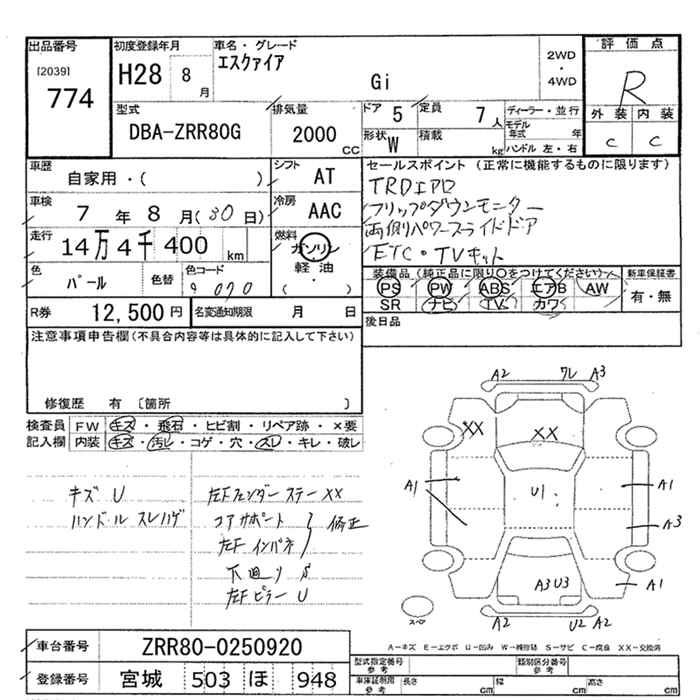 出品番号
[2039]
774
初度登録年月
H28 8月
車名・グレード
エスクァイア
Gi
2WD
・
4WD
評価点
R
外装 内装
C C
型式
DBA-ZRR80G
排気量
2000 CC
ドア 5
定員 7人
形状 W
積載 kg
ディーラー・並行
モデル年式 年
ハンドル 左・右
車歴
自家用・( )
シフト
AT
車検
7年 8月(30日)
冷房
AAC
走行
14万4千400 km
燃料
ガソリン
軽油
( ・ )
色
パール
色替
色コード
070
セールスポイント (正常に機能するものに限ります)
TRDエアロ
フリップダウンモニター
両側パワースライドドア
ETC・TVキット
装備品(純正品に限り○をつけてください)
PS PW ABS エアB AW
SR ナビ TV カワ
新車保証書
有・無
R券 12,500円
名変通知期限 月 日
後日品
注意事項申告欄(不具合内容等は具体的に記入して下さい)
修復歴 有 〔箇所 〕
検査員記入欄
FW キズ・飛石・ヒビ割・リペア跡・×要
内装 キズ・汚レ・コゲ・穴・スレ・キレ・破レ
キズ U
ハンドル スレハゲ
左Fフェンダー ステー XX
コアサポート
左F インパネ
修正
下廻り S
左Fピラー U
A2 ワレ A3
XX XX
A1 U1 A1
A3
A3 U3 A1
スペア
A2 U2 A2
A-キズ E-エクボ U-凹み W-補修跡 S-サビ C-腐食 XX-交換済
車台番号 ZRR80-0250920
登録番号 宮城 503 ほ 948
型式指定番号 参考
類別区分番号 参考
車庫証明用 参考
長さ cm 幅 cm 高さ cm